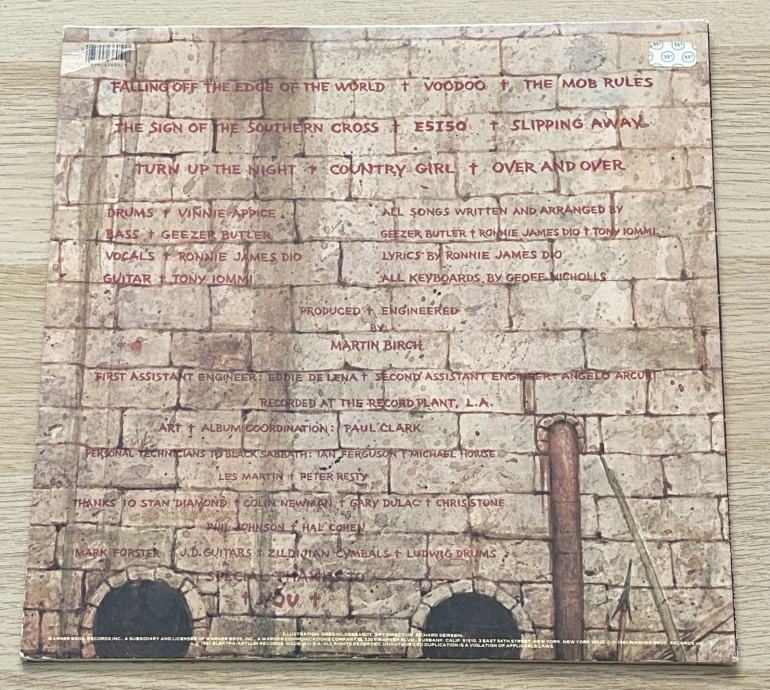 FALLING OFF THE EDGE OF THE WORLD † VOODOO † THE MOB RULES
THE SIGN OF THE SOUTHERN CROSS † E5150 † SLIPPING AWAY
TURN UP THE NIGHT † COUNTRY GIRL † OVER AND OVER
DRUMS † VINNIE APPICE
BASS † GEEZER BUTLER
VOCALS † RONNIE JAMES DIO
GUITAR † TONY IOMMI
ALL SONGS WRITTEN AND ARRANGED BY
GEEZER BUTLER † RONNIE JAMES DIO † TONY IOMMI
LYRICS BY RONNIE JAMES DIO
ALL KEYBOARDS BY GEOFF NICHOLLS
PRODUCED † ENGINEERED
BY
MARTIN BIRCH
FIRST ASSISTANT ENGINEER: EDDIE DE LENA † SECOND ASSISTANT ENGINEER: ANGELO ARCURI
RECORDED AT THE RECORD PLANT, L.A.
ART † ALBUM COORDINATION: PAUL CLARK
PERSONAL TECHNICIANS TO BLACK SABBATH: IAN FERGUSON † MICHAEL HOWSE
LES MARTIN † PETER RESTY
THANKS TO STAN DIAMOND † COLIN NEWMAN † GARY DULAC † CHRIS STONE
PHIL JOHNSON † HAL COHEN
MARK FORSTER † J.D. GUITARS † ZILDJIAN CYMBALS † LUDWIG DRUMS
SPECIAL THANKS TO
† YOU †
ILLUSTRATION: GREG HILDEBRANDT. ART DIRECTOR: RICHARD SEIREENI.
WARNER BROS. RECORDS INC., A SUBSIDIARY AND LICENSEE OF WARNER BROS. INC., A WARNER COMMUNICATIONS COMPANY, 3300 WARNER BLVD., BURBANK, CALIF. 91510. 3 EAST 54TH STREET, NEW YORK, NEW YORK 10022 © ℗ 1981 WARNER BROS. RECORDS INC.
ELEKTRA/ASYLUM RECORDS. MADE IN U.S.A. ALL RIGHTS RESERVED. UNAUTHORIZED DUPLICATION IS A VIOLATION OF APPLICABLE LAWS.